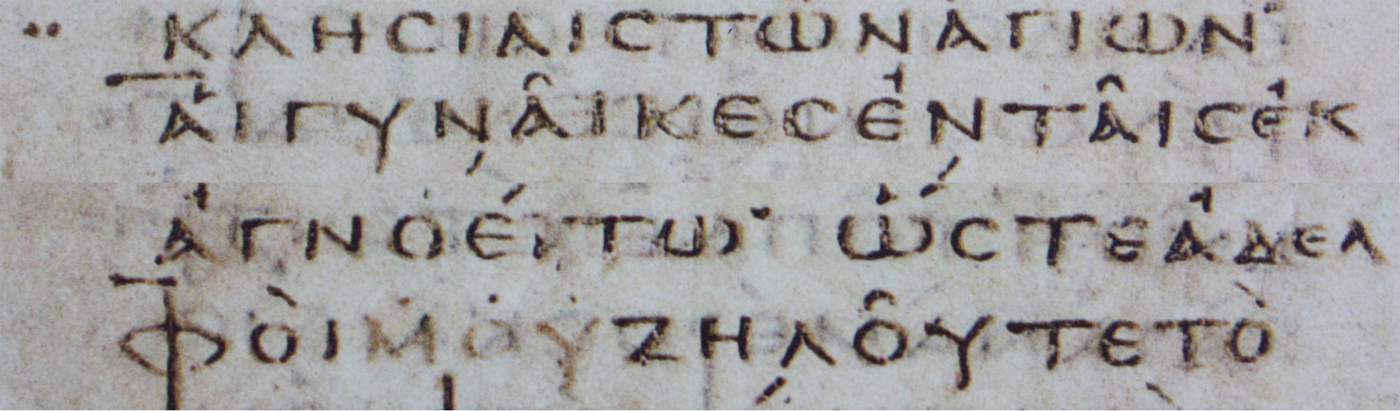 ΚΛΗϹΙΑΙϹΤῶΝἁΓΙΩΝ·
ἁΙΓΥΝΑ͂ΙΚΕϹἐΝΤΑ͂ΙϹἐΚ
ἀΓΝΟΈΙΤΩ· ὥϹΤΕἀΔΕΛ
ΦῸΙΜΟΥΖΗΛΟ͂ΥΤΕΤῸ